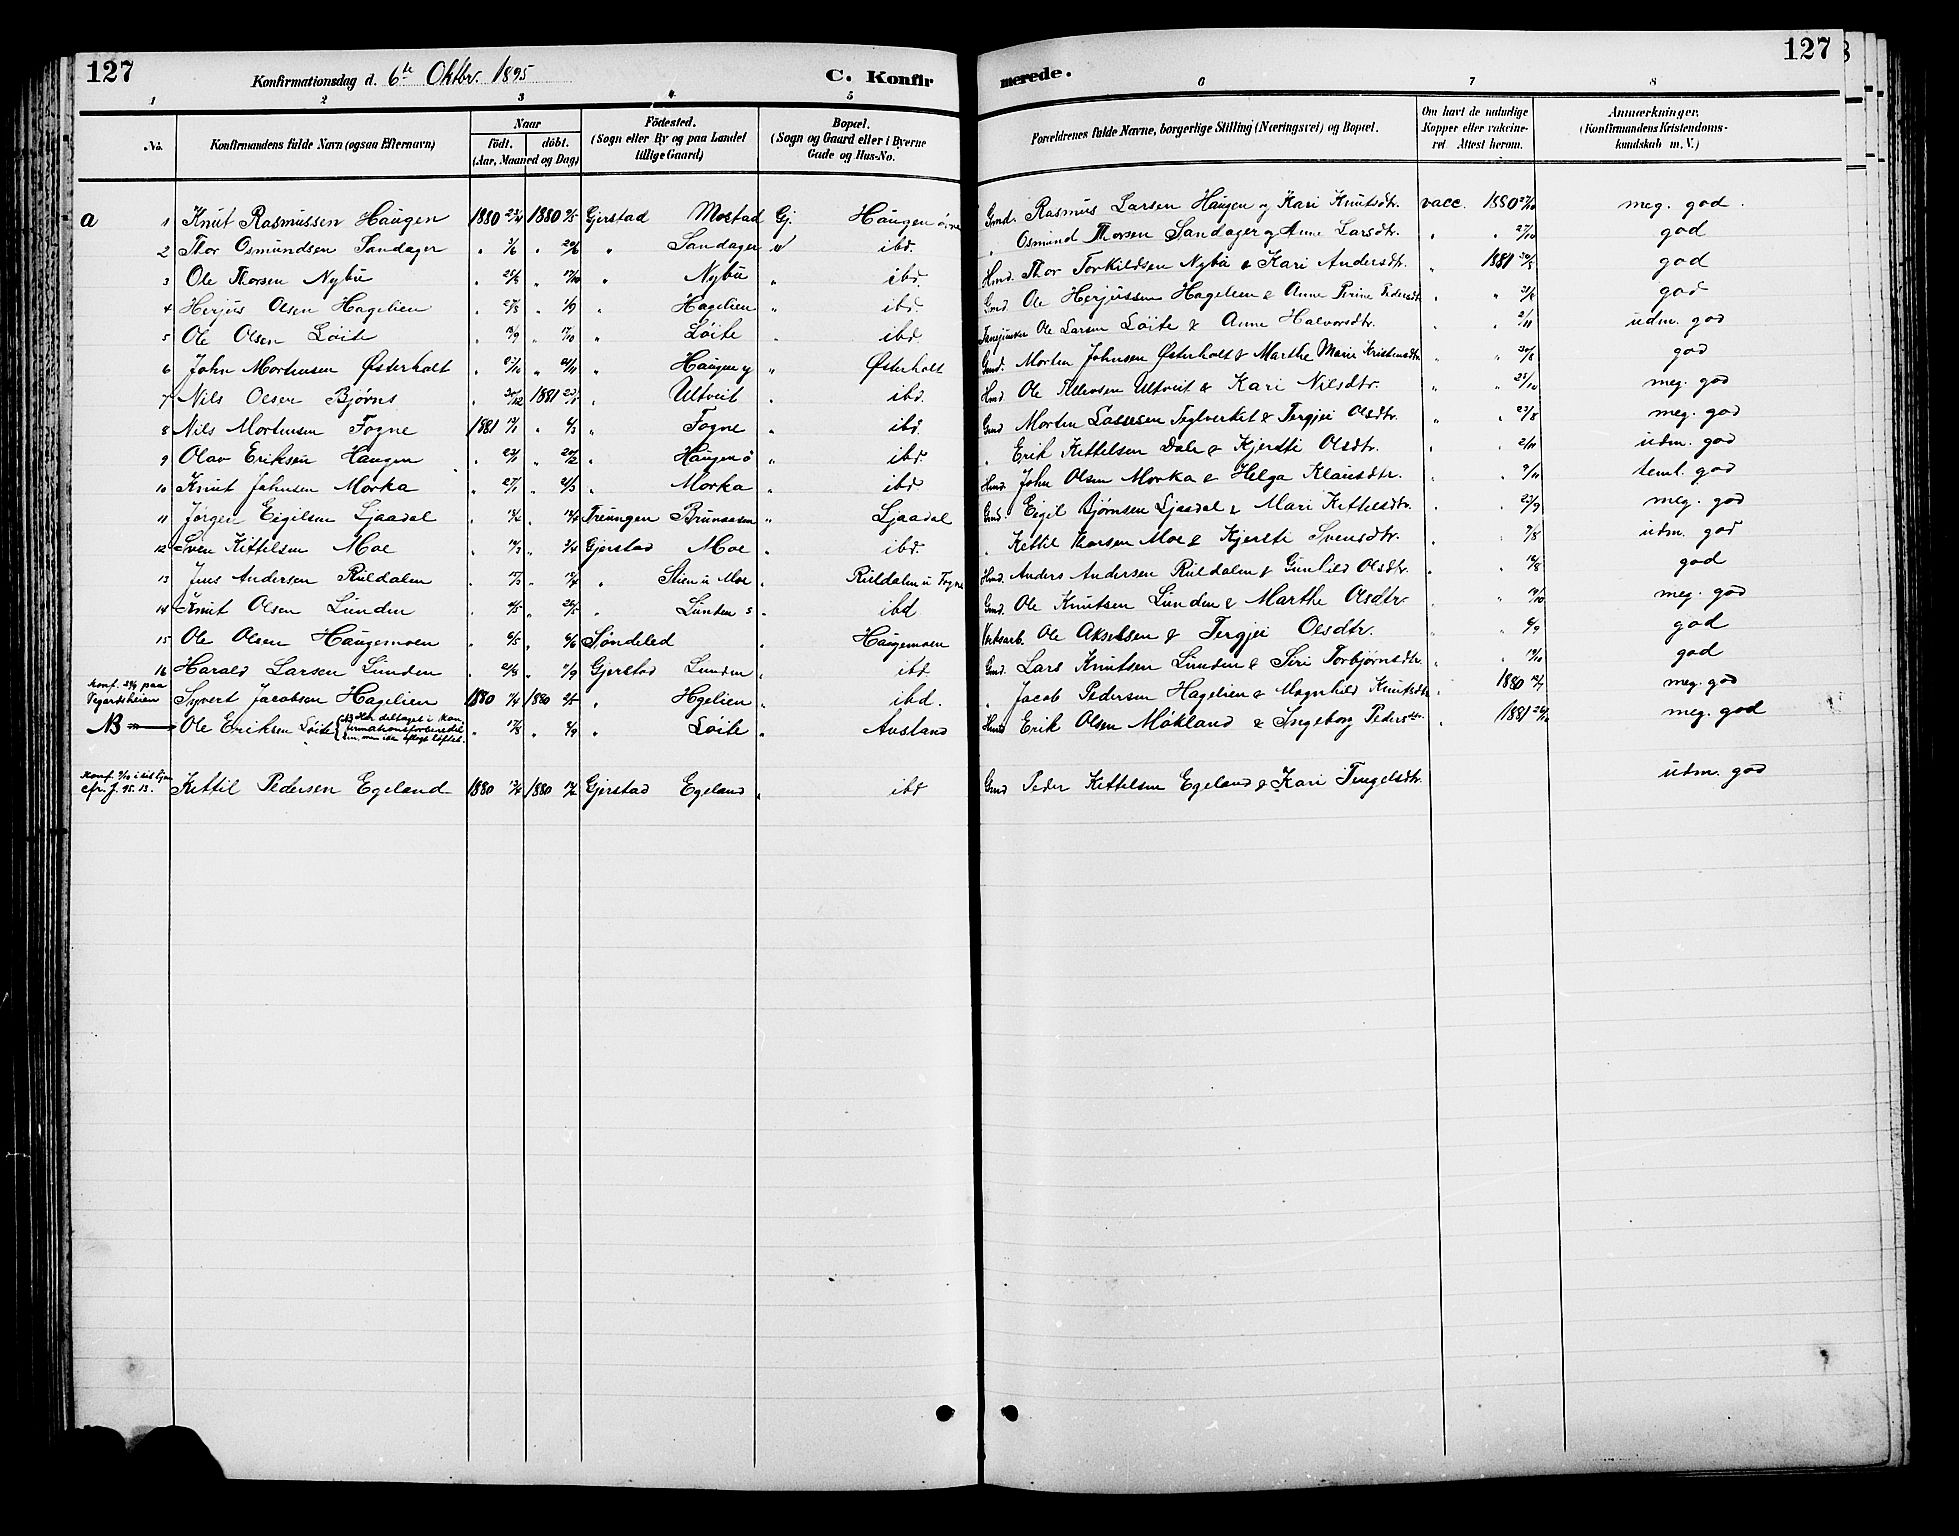 127
127
Konfirmationsdag d. 6te Oktbr. 1895
C. Konfir
merede.
1 2 3 4 5 6 7 8
No.
Konfirmandens fulde Navn (ogsaa Efternavn)
Naar
födt. döbt.
(Aar, Maaned og Dag)
Födested.
(Sogn eller By og paa Landet
tillige Gaard)
Bopæl.
(Sogn og Gaard eller i Byerne
Gade og Hus-No.
Forældrenes fulde Navne, borgerlige Stilling (Næringsvei) og Bopæl.
Om havt de naturlige
Kopper eller vakcine-
ret Attest herom.
Anmærkninger.
(Konfirmandens Kristendoms-
kundskab m. V.)
a 1 Knut Rasmussen Haugen 1880 1880 Gjerstad Mostad Gj. Haugen øvre Gmd. Rasmus Larsen Haugen og Kari Knutsdtr. vacc. 1880 meg. god.
2 Thor Osmundsen Sandager " " 20/6 " Sandager " ibd. " Osmund Thorsen Sandager og Anne Larsdtr. " " 27/10 god
3 Ole Thorsen Nybu " " 17/10 " Nybu " ibd. Hmd. Thor Torkildsen Nybu & Kari Andersdtr. " 1881 god
4 Herjus Olsen Hagelien " " 1/9 " Hagelien " ibd. Gmd. Ole Herjussen Hagelien & Anne Terine Pedersdtr " " god
5 Ole Olsen Löite " " 17/10 " Löite " ibd. Ole Larsen Löite & Anne Halvorsdtr. " " 2/11 udm. god
6 John Mortensen Østerholt " " 21/11 " Haugen y " Østerholt Gmd. Morten Johnsen Østerholt & Marthe Marie Kristensdtr " " god
7 Nils Olsen Bjørns " 1881 " Ultveit " ibd. Hmd Ole Tellevsen Ultveit & Kari Nilsdtr. " " 25/10 meg. god
8 Nils Mortensen Fogne 1881 " 6/3 " Fogne " ibd. Gmd Morten Lassesen Teglverket & Tergjei Olsdtr. " " 23/8 meg. god
9 Olav Eriksen Haugen " " 20/2 " Haugen ö " ibd. " Erik Kittelsen Dale & Kjersti Olsdtr. " " 2/11 udm. god
10 Knut Johnsen Morka " 27/1 " " Morka " ibd Hmd. John Olsen Morka & Helga Klausdtr. " " 9/11 teml. god
11 Jörgen Eigilsen Ljaadal " " Treungen Brunaasen " Ljaadal Gmd. Eigil Bjørnsen Ljaadal & Mari Kittelsdtr. " " 23/9 meg. god
12 Sven Kittelsen Moe " " Gjerstad Moe " ibd. " Kittil Thorsen Moe & Kjersti Svensdtr. " " 9/8 udm. god
13 Jens Andersen Ruldalen " " " Stien u Moe " Ruldalen u Fogne Hmd. Anders Andersen Ruldalen & Gunhild Olsdtr. " " god
14 Knut Olsen Lunden " " " Lunden s " ibd Gmd. Ole Knutsen Lunden & Marthe Olsdtr. " " 14/10 meg. god
15 Ole Olsen Haugemoen " " Søndeled " Haugemoen Verksarb. Ole Akselsen & Tergjei Olsdtr. " " 6/9 god
16 Harald Larsen Lunden " " Gjerstad Lunden " ibd Gmd. Lars Knutsen Lunden & Siri Torbjørnsdtr. " " 14/10 god
Konf. 29/9 paa
Vegardsheien
Syvert Jacobsen Hagelien 1880 1880 " Hgelien " ibd. " Jacob Pedersen Hagelien & Magnhild Knutsdtr " 1880 meg. god
NB Ole Eriksen Löite (NB Har deltaget i Kon
firmationsforberedel
sen, men ikke aflagt löftet.
" " " Löite " Ausland Hmd Erik Olsen Mokland & Ingeborg Pedersdtr. " 1881 meg. god
Kettil Pedersen Egeland 1880 1880 Gjerstad Egeland " ibd Gmd Peder Kettelsen Egeland & Kari Tengelsdtr. udm. god